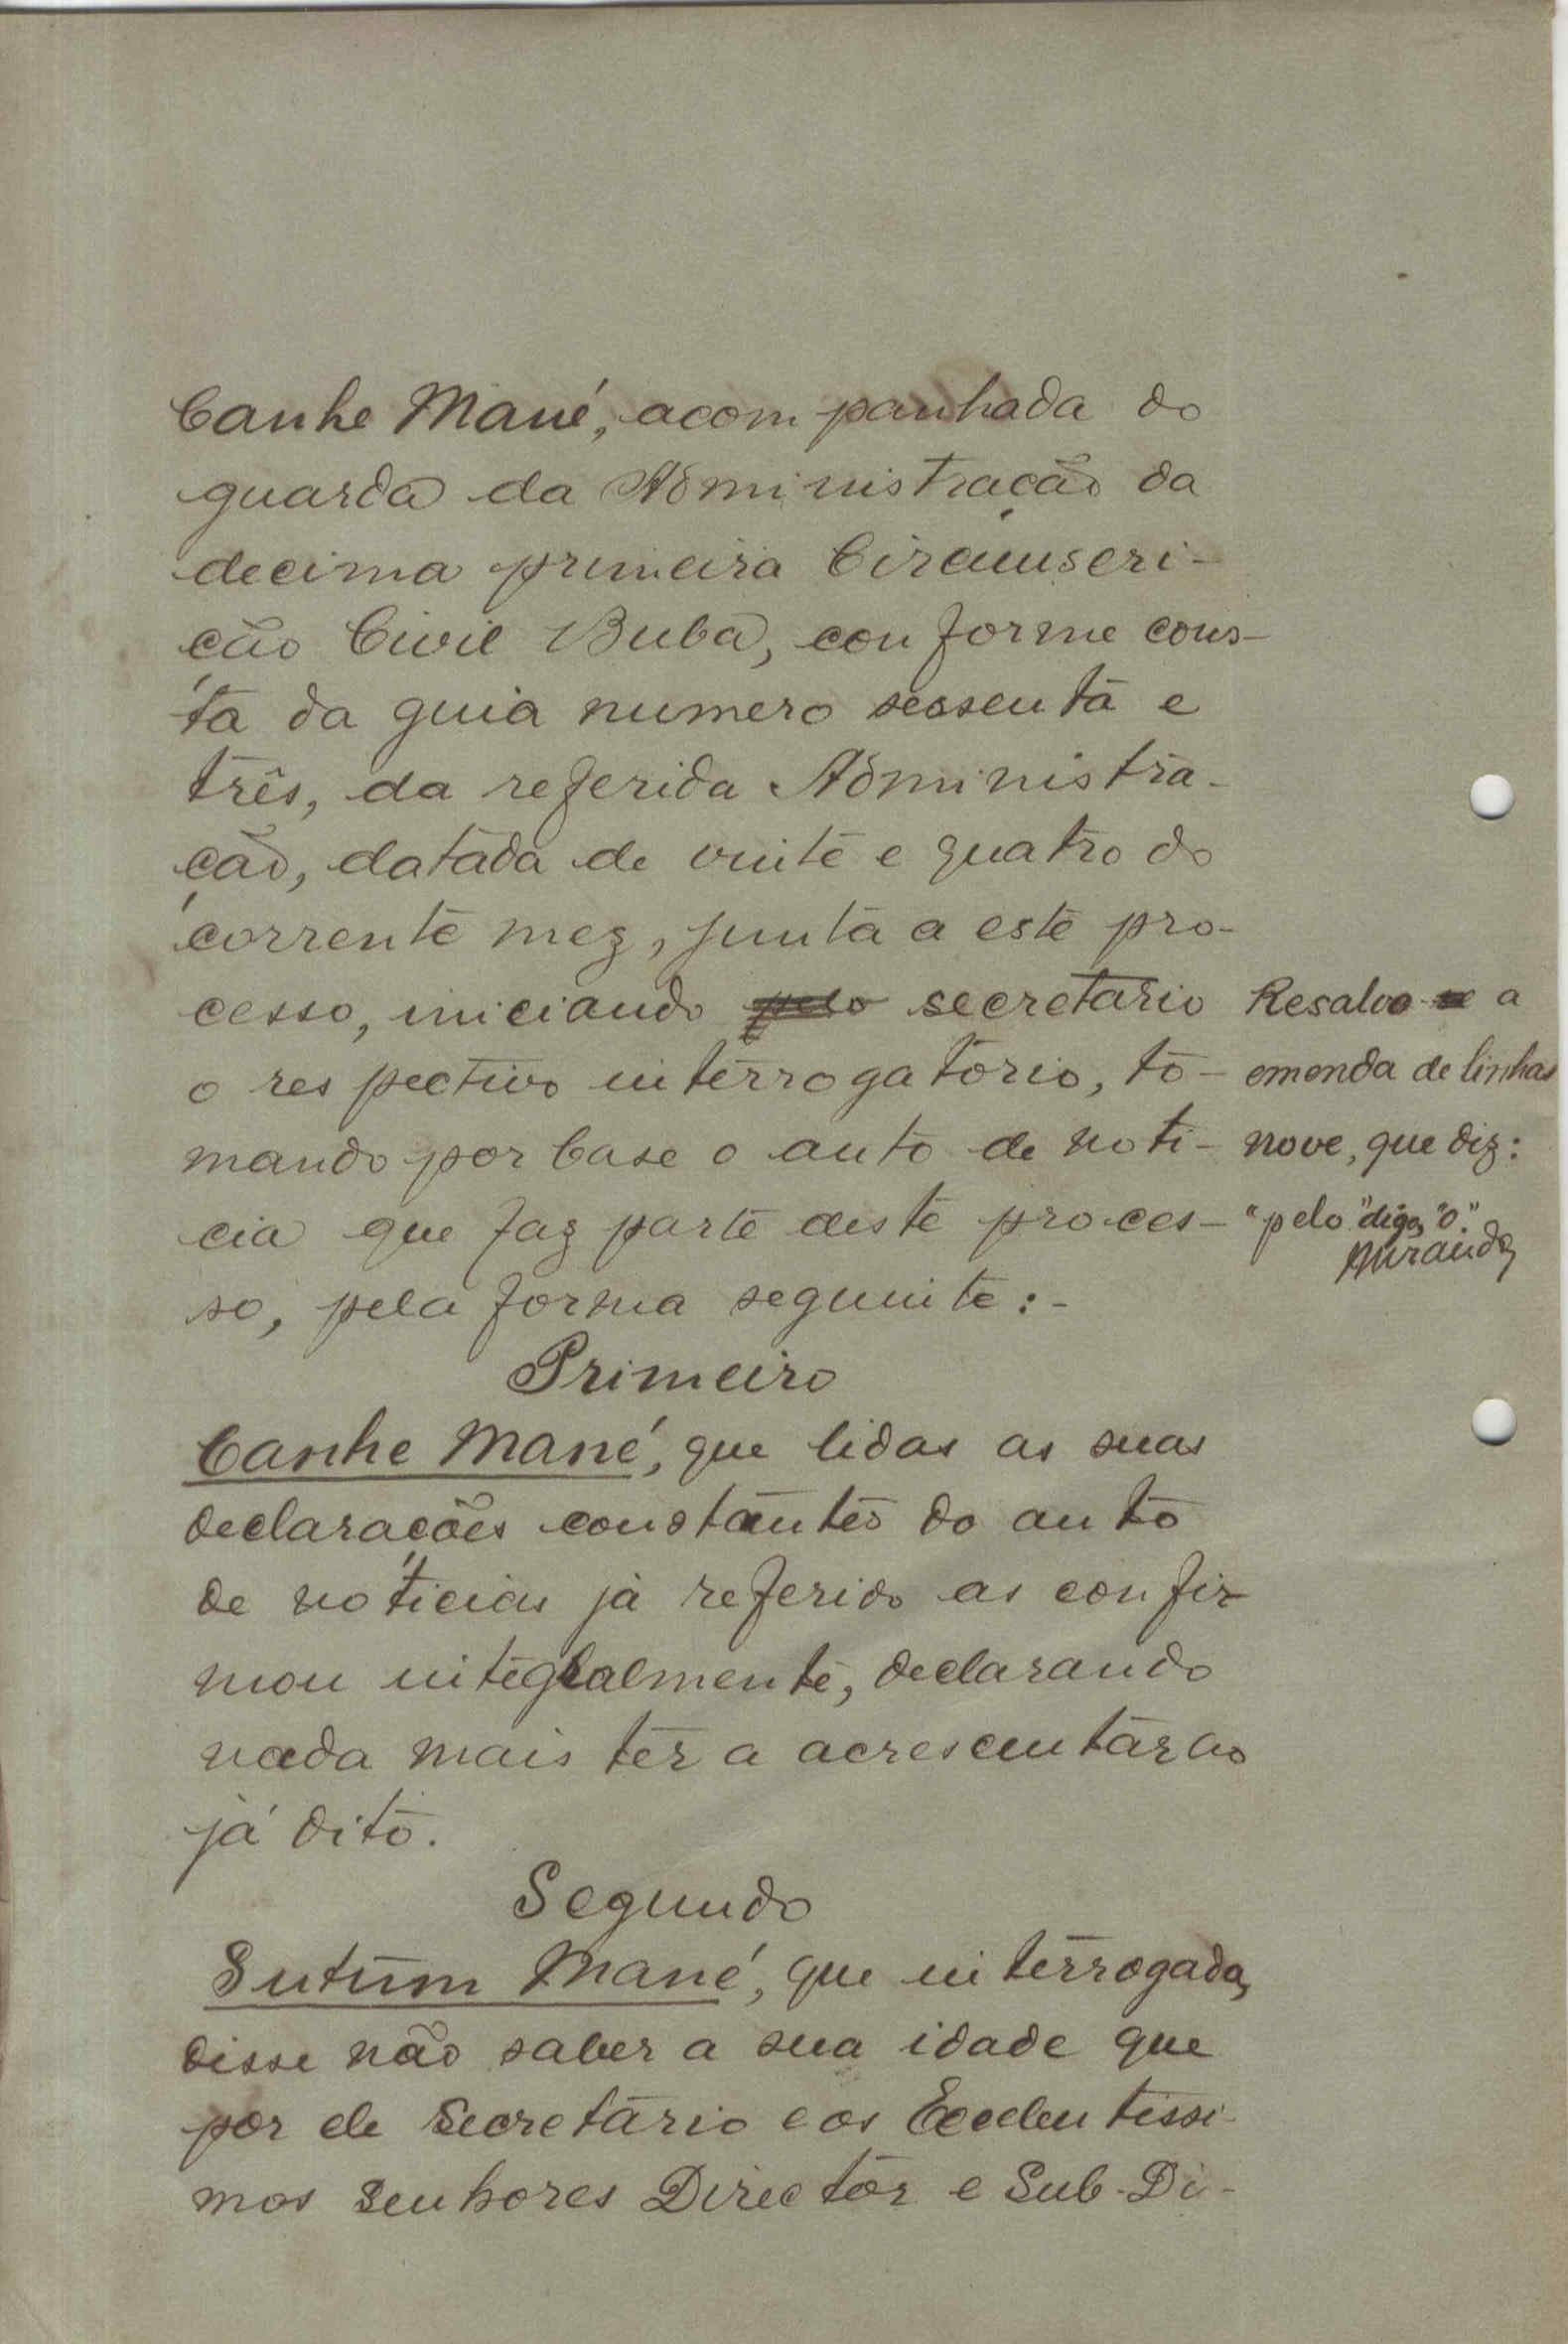 Canhe Mané, acompanhada do
guarda da Administração da
decima primeira Circunscri-
ção Civil Buba, conforme cons-
ta da guia numero sessenta e
três, da referida Administra-
ção, datada de vinte e quatro do
corrente mez, junta a este pro-
cesso, iniciando pelo secretario
o respectivo interrogatorio, to-
mando por base o auto de noti-
cia que faz parte deste proces-
so, pela forma seguinte:-
Resalvo a
emenda de linhas
nove, que diz:
"pelo" digo, "o".
Miranda
Primeiro
Canhe Mané, que lidas as suas
declarações constantes do auto
de noticias já referido as confir-
mou integralmente, declarando
nada mais ter a acrescentar ao
já dito.
Segundo
Sutum Mané, que interrogada,
disse não saber a sua idade que
por ele Secretário e os Excelentissi-
mos Senhores Director e Sub-Di-